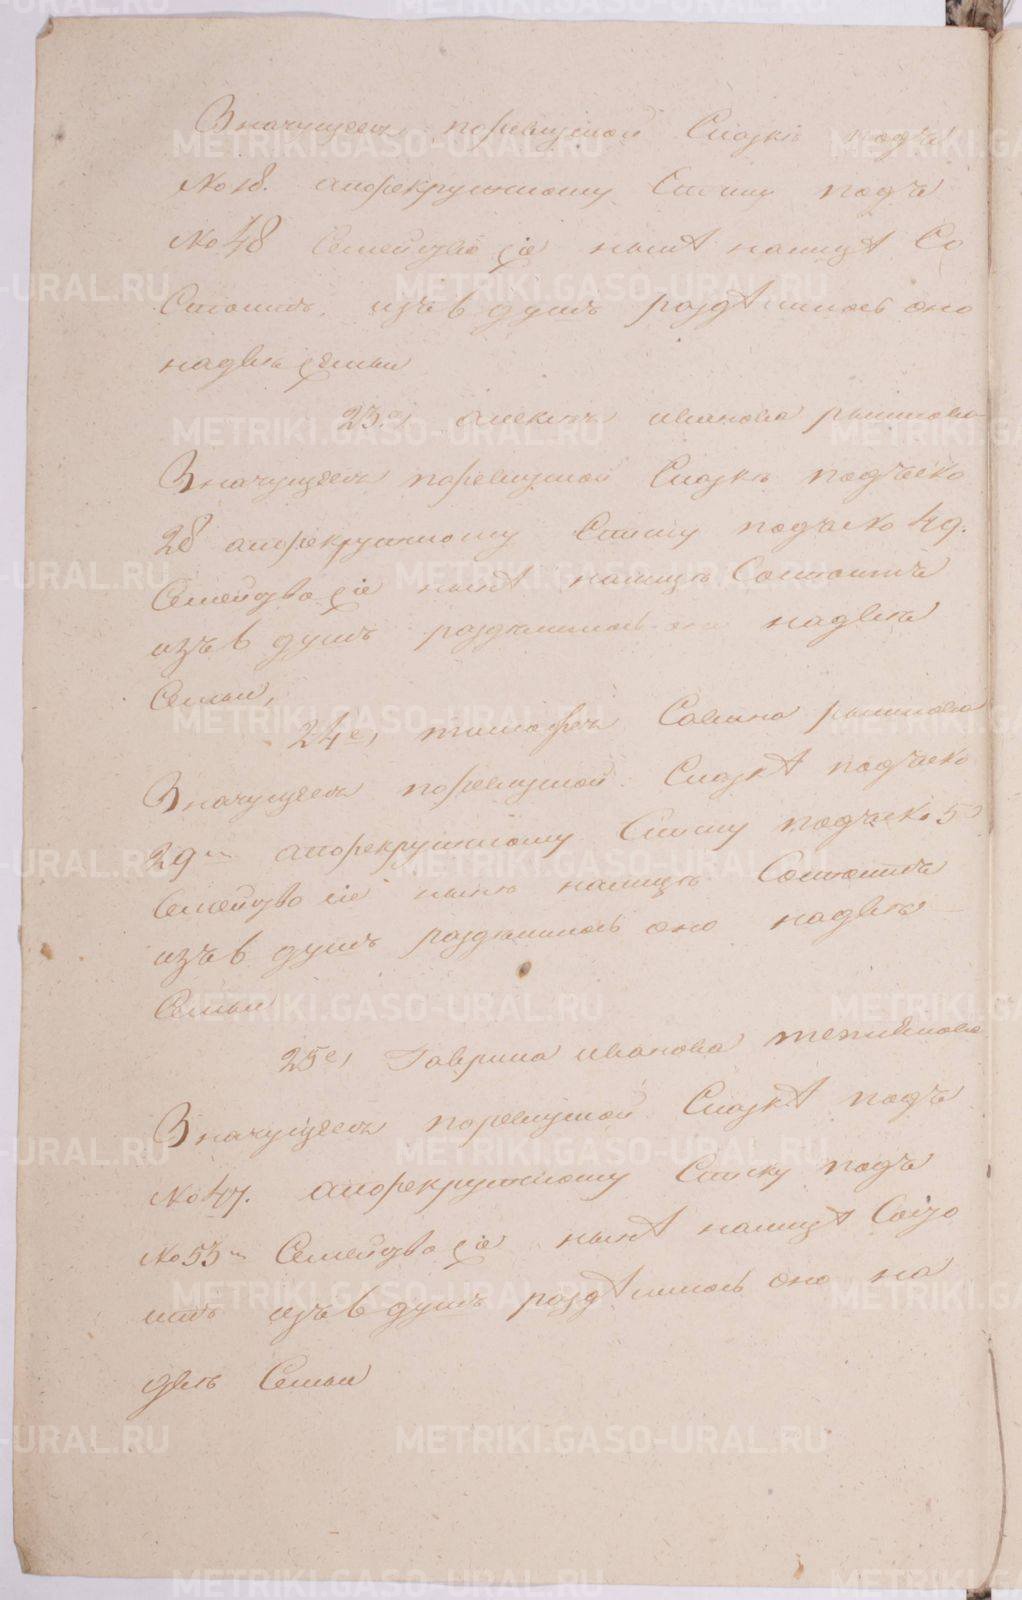 Значущееся поревизской Сказке подъ
№ 18. апорекрутскому Списку подъ
№ 48 Семейство сіе нынѣ налицѣ Со
Стоитъ изъ 6 душъ раздѣлилось оно
надве семьи
23е, алексея иванова
Значущееся поревизской Сказке подъ
28 апорекрутскому Списку подъ 49.
Семейство сіе нынѣ налице Состоитъ
изъ 6 душъ разделилось оно надве
Семьи,
24е, тимофея Савина
Значущееся поревизской Сказкѣ подъ
29м апорекрутскому Списку подъ
Семейство сіе ныне налице Состоитъ
изъ 6 душъ разделилось оно надве
Семьи
25е, Гаврила иванова
Значущееся поревизской Сказкѣ подъ
№ 47. апорекрутскому Списку подъ
№ 53м Семейство сіе нынѣ налицѣ Состо
итъ изъ 6 душъ раздѣлилось оно на
две Семьи
METRIKI.GASO-URAL.RU